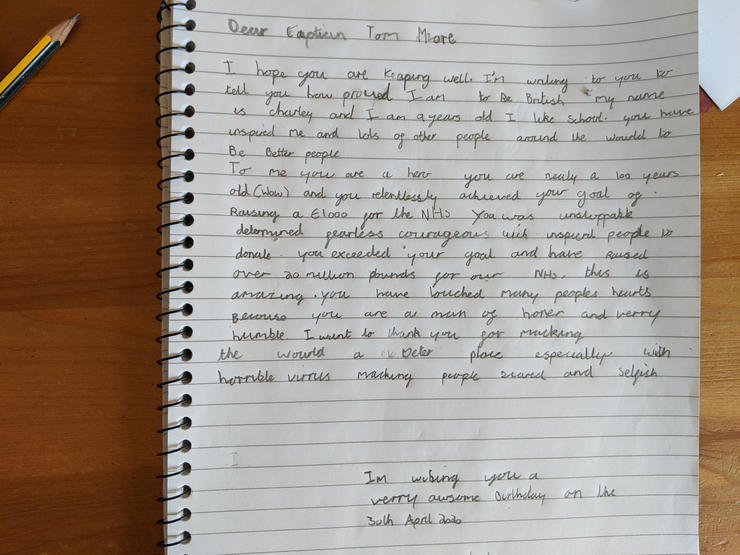 Dear Captien Tom Moore
I hope you are Keaping well. I'm writing to you to
tell you how proued I am to Be British my name
is charley and I am 9 years old I like school. you have
inspired me and lots of other people around the wourld to
Be Better people
To me you are a hero you are nealy a 100 years
old (wow) and you relentlessly achieved your goal of.
Raising a £1000 for the NHS You was unstoppable
determined fearless courageous with inspired people to
donate. you exceeded your goal and have raised
over 20 million pounds for our NHS. this is
amazing. you have touched many peoples hearts
Because you are a man of honer and verry
humble I want to thank you for macking
the wourld a Beter place especially with
horrible virrus macking people scared and selfish
Im wishing you a
verry awsome birthday on the
30th April 2020